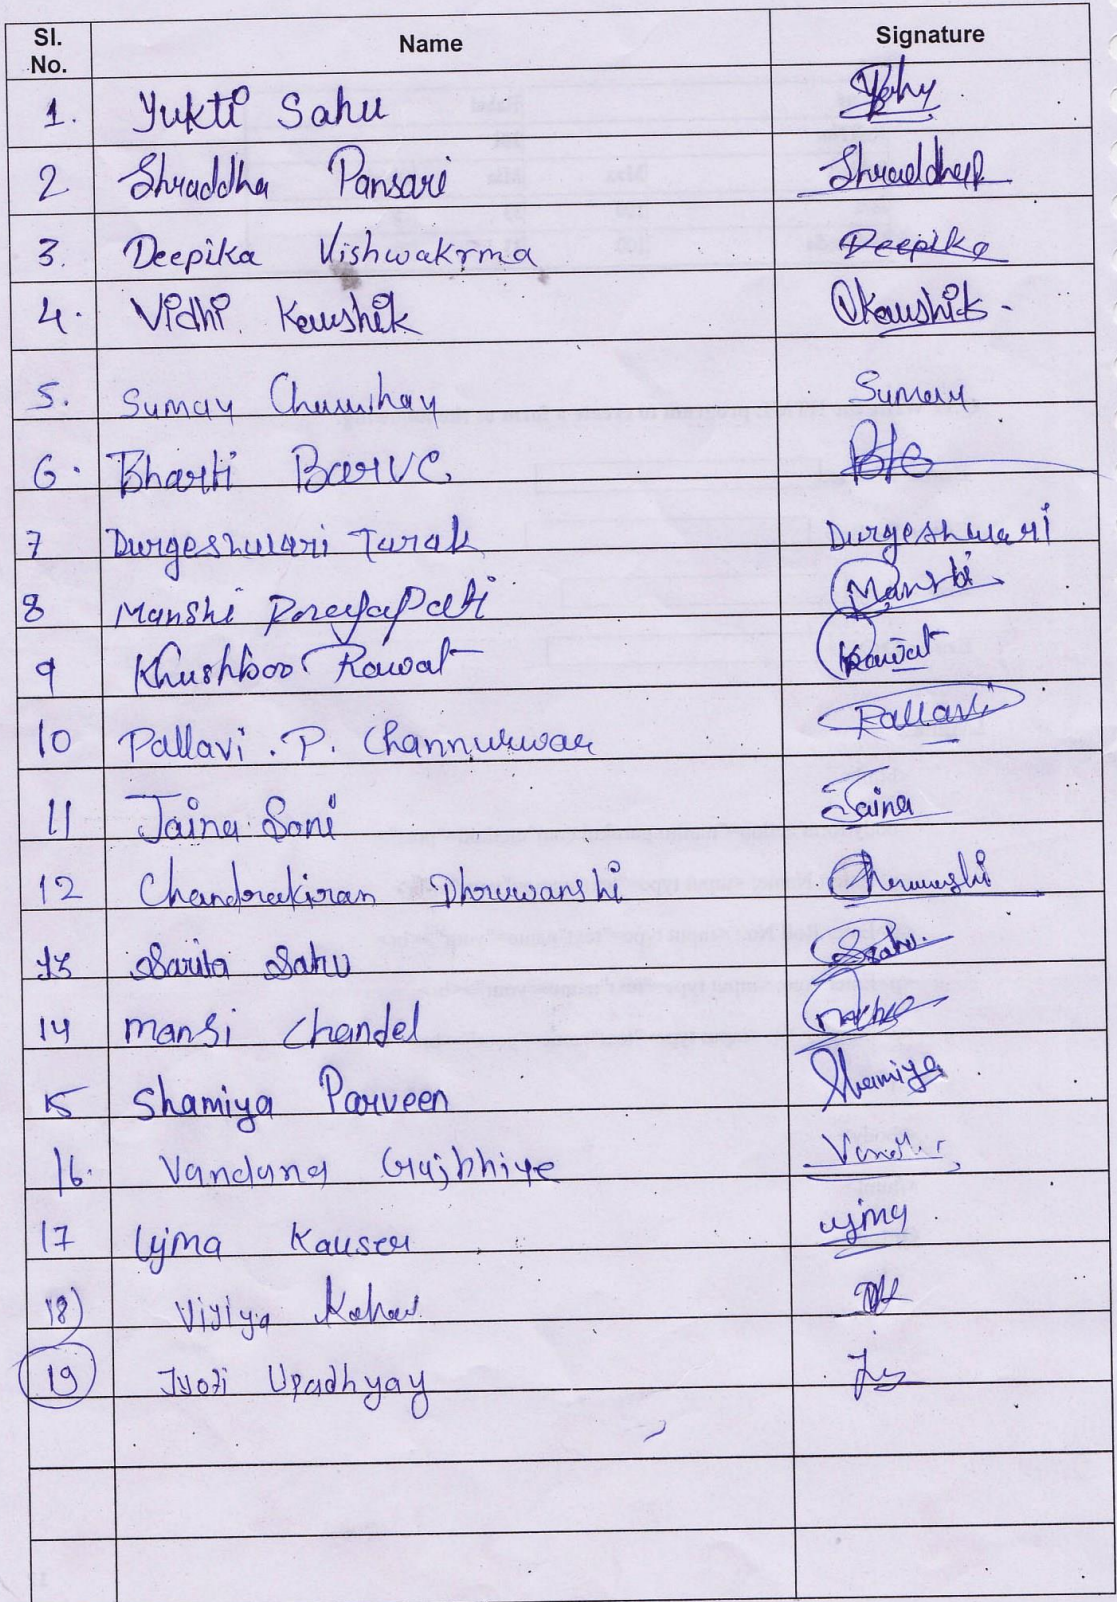 Sl. No. Name Signature
1. Yukti Sahu
2 Shraddha Pansari Shraddha
3. Deepika Vishwakrma Deepika
4. Vidhi Kaushik Kaushik
5. Sumay Sumay
6. Bharti Barve
7 Durgeshwari Turak Durgeshwari
8 Manshi Manshi
9 Khushboo Rawat Rawat
10 Pallavi . P. Channurwar Pallavi
11 Jaina Soni Jaina
12 Chandrakiran Dhruwanshi
13 Sarita Sahu Ssahu.
14 mansi Chandel
15 Shamiya Parveen Shamiya
16. Vandana Gajbhiye
17 Ujma Kauser ujma
18) Vijiya
19 Jyoti Upadhyay